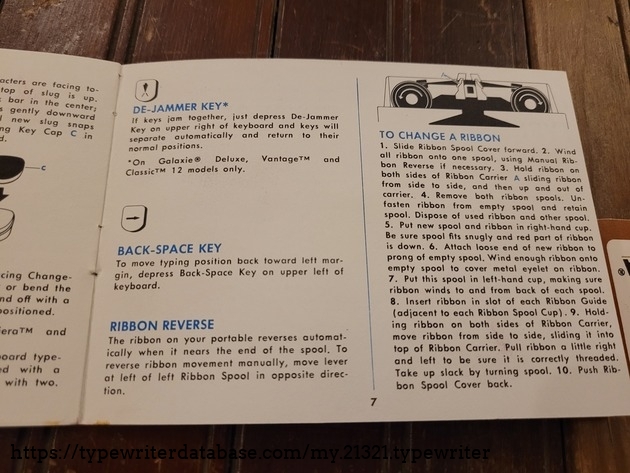 acters are facing to-
top of slug is up.
bar in the center;
s gently downward
new slug snaps
ng Key Cap C in
d.
C
cing Change-
or bend the
nd off with a
positioned.
era™ and
board type-
ed with a
with two.
DE-JAMMER KEY*
If keys jam together, just depress De-Jammer
Key on upper right of keyboard and keys will
separate automatically and return to their
normal positions.
*On Galaxie® Deluxe, Vantage™ and
Classic™ 12 models only.
BACK-SPACE KEY
To move typing position back toward left mar-
gin, depress Back-Space Key on upper left of
keyboard.
RIBBON REVERSE
The ribbon on your portable reverses automat-
ically when it nears the end of the spool. To
reverse ribbon movement manually, move lever
at left of left Ribbon Spool in opposite direc-
tion.
TO CHANGE A RIBBON
1. Slide Ribbon Spool Cover forward. 2. Wind
all ribbon onto one spool, using Manual Rib-
bon Reverse if necessary. 3. Hold ribbon on
both sides of Ribbon Carrier A sliding ribbon
from side to side, and then up and out of
carrier. 4. Remove both ribbon spools. Un-
fasten ribbon from empty spool and retain
spool. Dispose of used ribbon and other spool.
5. Put new spool and ribbon in right-hand cup.
Be sure spool fits snugly and red part of ribbon
is down. 6. Attach loose end of new ribbon to
prong of empty spool. Wind enough ribbon onto
empty spool to cover metal eyelet on ribbon.
7. Put this spool in left-hand cup, making sure
ribbon winds to and from back of each spool.
8. Insert ribbon in slot of each Ribbon Guide
(adjacent to each Ribbon Spool Cup). 9. Hold-
ing ribbon on both sides of Ribbon Carrier,
move ribbon from side to side, sliding it into
top of Ribbon Carrier. Pull ribbon a little right
and left to be sure it is correctly threaded.
Take up slack by turning spool. 10. Push Rib-
bon Spool Cover back.
7
https://typewriterdatabase.com/my.21321.typewriter